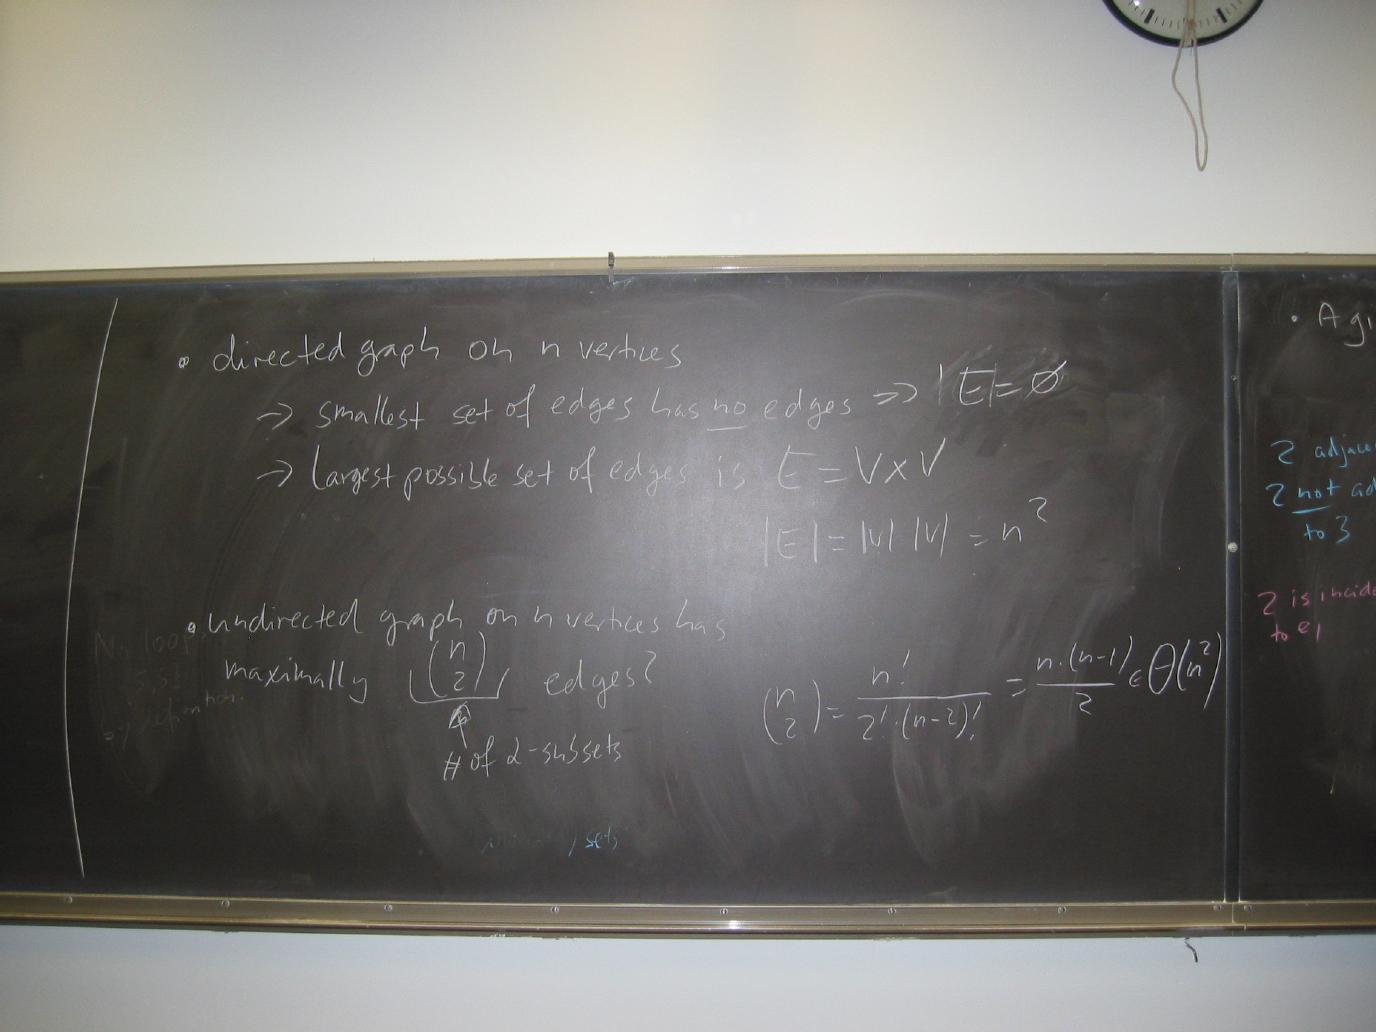 • directed graph on n vertices
→ smallest set of edges has no edges => |E| = ∅
→ largest possible set of edges is E = V x V
|E| = |V| |V| = n²
• undirected graph on n vertices has
maximally (n 2) edges?
# of 2-subsets
(n 2) = n! / 2!·(n-2)! = n·(n-1) / 2 ∈ Θ(n²)
No loops
by definition.
sets
• A gi
2 adjace
2 not ad
to 3
2 is incide
to e1